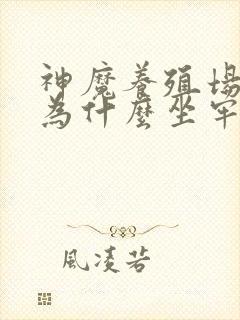 神魔養殖場
為什麼坐牢
風凌若